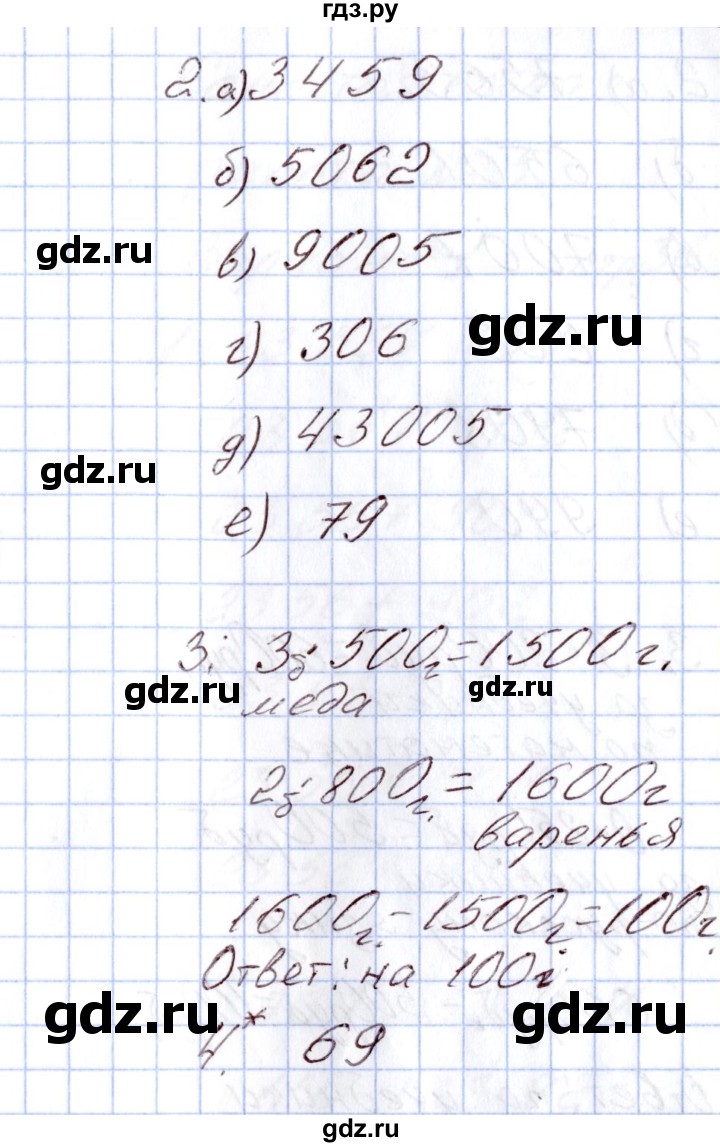 гдз.ру
2. а) 3459
б) 5062
gdz.ru
в) 9005
gdz.ru
г) 306
gdz.ru
д) 43005
е) 79
3. 3б · 500г = 1500г.
меда
gdz.ru
gdz.ru
2б · 800г. = 1600г
варенья
1600г. - 1500г = 100г.
Ответ: на 100г
gdz.ru
4.* 69
gdz.ru
gdz.ru